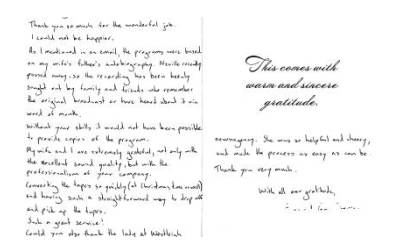 Thank you so much for the wonderful job.
I could not be happier.
As I mentioned in an email, the programs were based
on my wife's father's autobiography. Neville recently
passed away, so the recording has been
sought out by family and friends who remember
the original broadcast or have heard about it via
word of mouth.
Without your skills it would not have been possible
to provide copies of the program.
My wife and I are extremely grateful, not only with
the excellent sound quality, but with the
professionalism of your company.
Converting the tapes so quickly (at Christmas time as well)
and having such a straightforward way to drop off
and pick up the tapes.
Such a great service!
Could you also thank the lady at
This comes with
warm and sincere
gratitude.
newsagency. She was so helpful and cheery,
and made the process as easy as can be.
Thank you very much.
With all our gratitude,